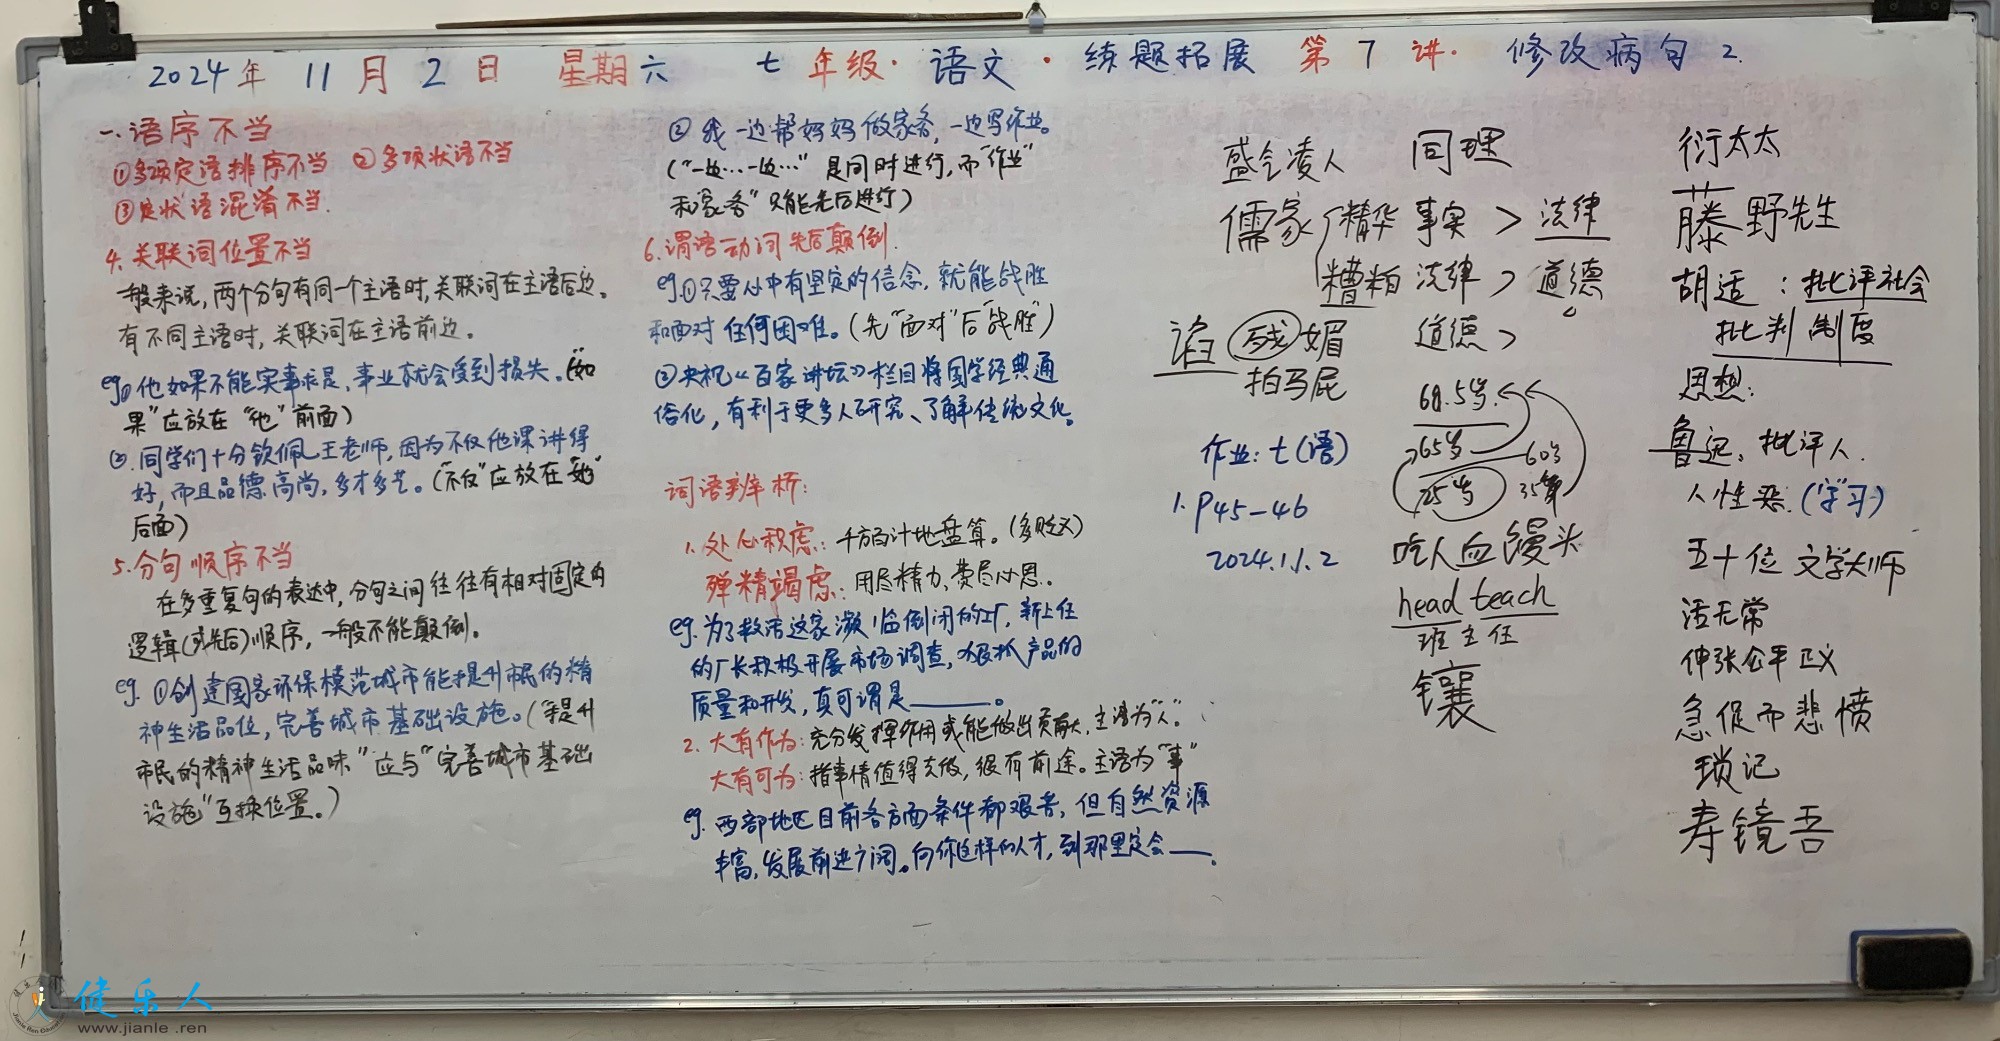 2024年 11月2日 星期六 七年级·语文·练题拓展 第7讲·修改病句2.
一.语序不当
①多项定语排序不当 ②多项状语不当
③定状语混淆不当.
4.关联词位置不当
一般来说,两个分句有同一个主语时,关联词在主语后边。
有不同主语时,关联词在主语前边。
eg.①他如果不能实事求是,事业就会受到损失。("如
果"应放在"他"前面)
②.同学们十分钦佩王老师,因为不仅他课讲得
好,而且品德高尚,多才多艺。("不仅"应放在"她"
后面)
5.分句顺序不当
在多重复句的表达中,分句之间往往有相对固定的
逻辑(或先后)顺序,一般不能颠倒。
eg.①创建国家环保模范城市能提升市民的精
神生活品位,完善城市基础设施。("提升
市民的精神生活品味"应与"完善城市基础
设施"互换位置。)
②我一边帮妈妈做家务,一边写作业。
("一边…一边…"是同时进行,而"作业"
和"家务"只能先后进行)
6.谓语动词先后颠倒.
eg.①只要心中有坚定的信念,就能战胜
和面对任何困难。(先"面对"后"战胜")
②央视《百家讲坛》栏目将国学经典通
俗化,有利于更多人研究、了解传统文化。
词语辨析:
1.处心积虑:千方百计地盘算。(多贬义)
殚精竭虑:用尽精力,费尽心思.
eg.为了救活这家濒临倒闭的工厂,新上任
的厂长积极开展市场调查,狠抓产品的
质量和开发,真可谓是______。
2.大有作为:充分发挥作用或能做出贡献大,主语为"人"。
大有可为:指事情值得去做,很有前途。主语为"事"
eg.西部地区目前各方面条件都艰苦,但自然资源
丰富,发展前途广阔。向你这样的人才,到那里定会___.
盛气凌人
儒家 精华
糟粕
谄 残 媚
拍马屁
作业:七(语)
1.P45-46
2024.11.2
同理
事实>法律
法律>道德
道德>
68.5岁
65岁 60岁
25岁
吃人血馒头
head teach
班主任
镶
衍太太
藤野先生
胡适:批评社会
批判制度
思想:
鲁迅:批评人.
人性恶.("学"习)
五十位文学大师
活无常
伸张公平正义
急促而悲愤
琐记
寿镜吾
健乐人
www.jianle.ren